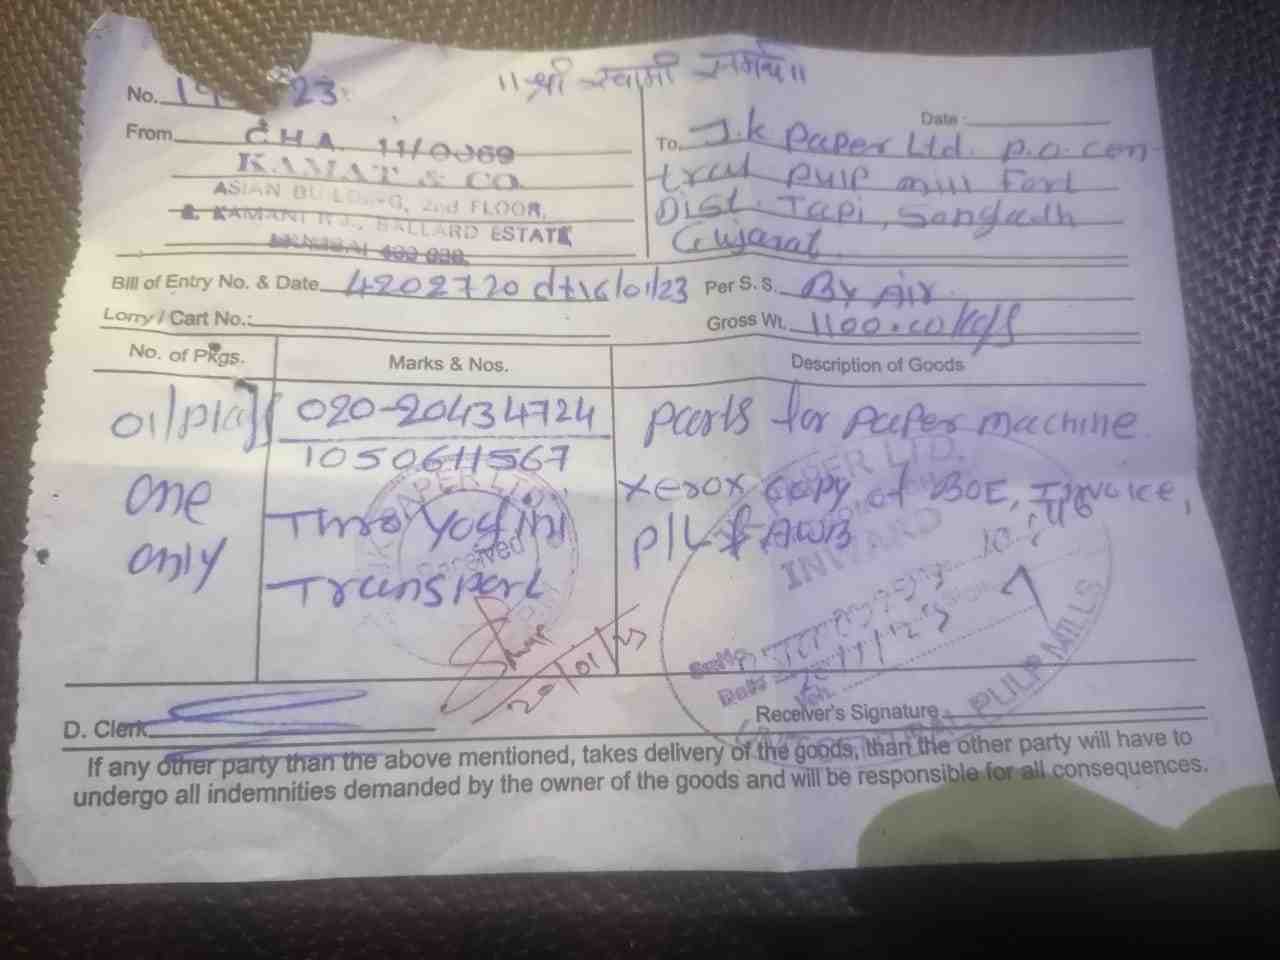 ॥ श्री स्वामी समर्थ ॥
No. 23
Date :
From CHA 11/0069
KAMAT & CO.
ASIAN BUILDING, 2nd FLOOR,
KAMANI RD., BALLARD ESTATE
MUMBAI 400 038.
To, J.K Paper Ltd. P.O. Cen-
tral Pulp mill Fort
Dist. Tapi, Songadh
Gujarat.
Bill of Entry No. & Date 4202720 dt 16/01/23
Per S. S. By Air.
Lorry / Cart No.:
Gross Wt. 1100.00 Kgs
No. of Pkgs.
Marks & Nos.
Description of Goods
01/pkg
one
only
020-20434724
1050611567
Thro Yogini
Transport
Parts for paper machine.
Xerox copy of BOE, Invoice,
P/L & AWB
PAPER LTD.
Received
20/01/23
PAPER LTD.
INWARD
Date
PULP MILLS
D. Clerk
Receiver's Signature
If any other party than the above mentioned, takes delivery of the goods, than the other party will have to
undergo all indemnities demanded by the owner of the goods and will be responsible for all consequences.